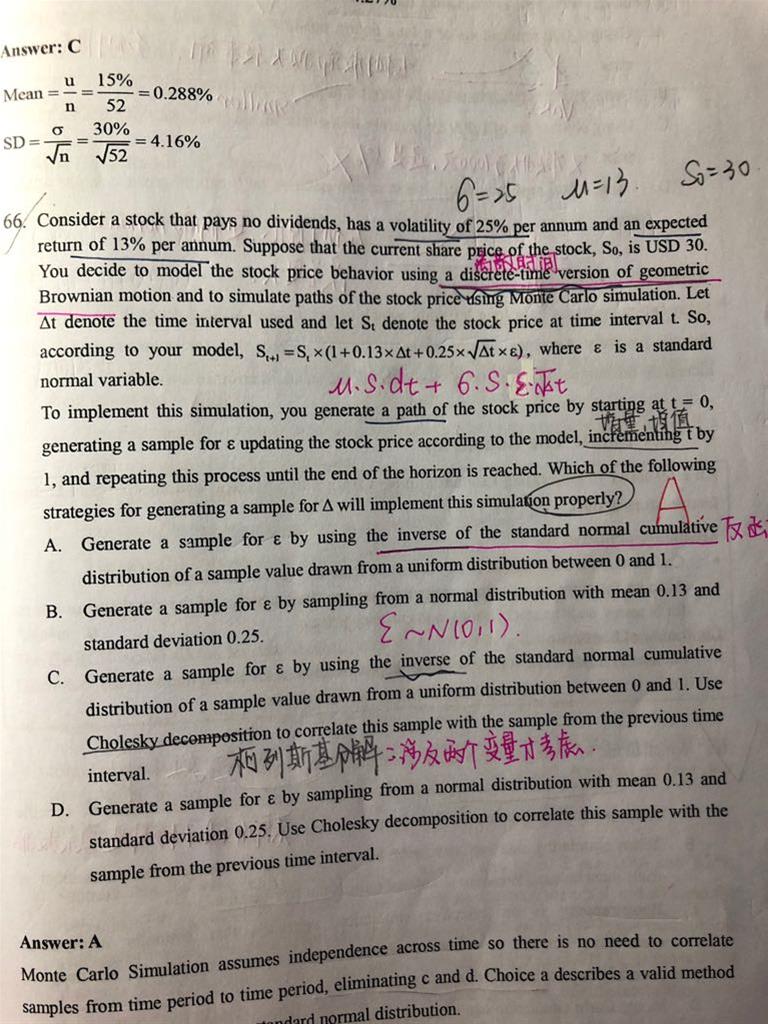 Answer: C
Mean = u/n = 15%/52 = 0.288%
SD = σ/√n = 30%/√52 = 4.16%
б=25 μ=13. S₀=30
66. Consider a stock that pays no dividends, has a volatility of 25% per annum and an expected
return of 13% per annum. Suppose that the current share price of the stock, S₀, is USD 30.
离散时间
You decide to model the stock price behavior using a discrete-time version of geometric
Brownian motion and to simulate paths of the stock price using Monte Carlo simulation. Let
Δt denote the time interval used and let Sₜ denote the stock price at time interval t. So,
according to your model, Sₜ₊₁ = Sₜ × (1+0.13×Δt+0.25×√Δt×ε), where ε is a standard
normal variable.
μ·S·dt + б·S·ε·√t
To implement this simulation, you generate a path of the stock price by starting at t = 0,
增量,增值
generating a sample for ε updating the stock price according to the model, incrementing t by
1, and repeating this process until the end of the horizon is reached. Which of the following
strategies for generating a sample for Δ will implement this simulation properly?
A.
A. Generate a sample for ε by using the inverse of the standard normal cumulative
反函
distribution of a sample value drawn from a uniform distribution between 0 and 1.
B. Generate a sample for ε by sampling from a normal distribution with mean 0.13 and
standard deviation 0.25.
ε ~N(0,1).
C. Generate a sample for ε by using the inverse of the standard normal cumulative
distribution of a sample value drawn from a uniform distribution between 0 and 1. Use
Cholesky decomposition to correlate this sample with the sample from the previous time
interval.
柯列斯基分解:涉及两个变量才考虑.
D. Generate a sample for ε by sampling from a normal distribution with mean 0.13 and
standard deviation 0.25. Use Cholesky decomposition to correlate this sample with the
sample from the previous time interval.
Answer: A
Monte Carlo Simulation assumes independence across time so there is no need to correlate
samples from time period to time period, eliminating c and d. Choice a describes a valid method
standard normal distribution.